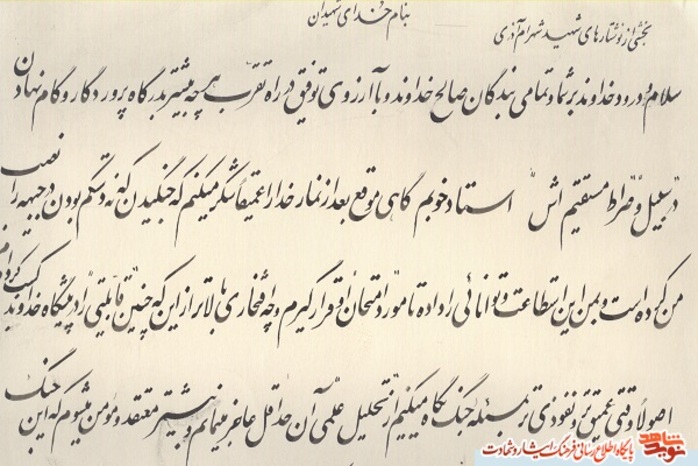 بنام خدای شهیدان
بخشی از نوشتارهای شهید شهرام آذری
سلام و درود خداوند بر شما و تمامی بندگان صالح خداوند و با آرزوی توفیق در راه تقرب هر چه بیشتر بدرگاه پروردگار و گام نهادن
در "سبیل" و "صراط مستقیم اش" استاد خوبم گاهی موقع بعد از نماز خدا را عمیقاً شکر میکنم که جنگیدن که نه دستکم بودن در جبهه را نصیب
من کرده است و بمن این استطاعت و توانائی را داده تا مورد امتحان او قرار گیرم و چه افتخاری بالاتر از این که چنین قابلیتی را در پیشگاه خداوند کسب کرده‌ام
اصولاً وقتی عمیق تر و نفوذی تر بمسئله جنگ نگاه میکنیم از تحلیل علمی آن حداقل عاجز میمانم و بیشتر معتقد و مؤمن میشوم که این جنگ
نوید شاهد
پایگاه اطلاع رسانی فرهنگ ایثار و شهادت